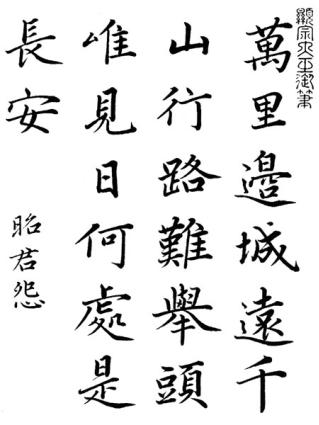 顯宗大王御筆
萬里邊城遠千
山行路難舉頭
唯見日何處是
長安
昭君怨